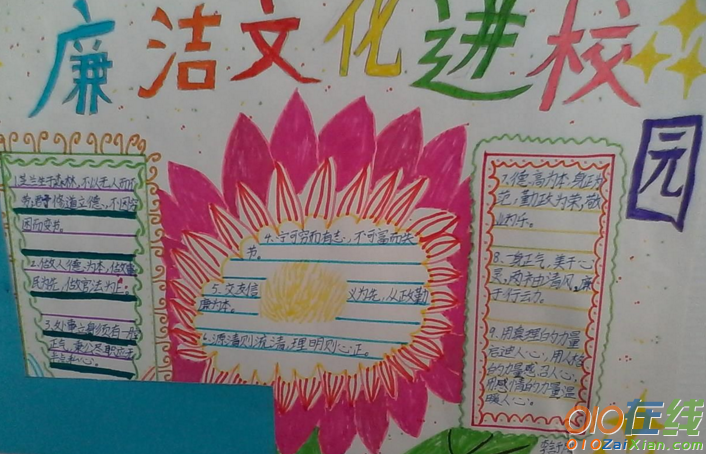 廉洁文化进校
园
1.芝兰生于森林,不以无人而不
芳,君子修道立德,不因穷
困而变节。
2.做人德为本,做官
民为先,做官法为上。
3.处事立身须有一股
正气,秉公尽职应无
半点私心。
4.宁可穷而有志,不可富而失
节。
5.交友信 义为先,从政勤
廉为本。
6.源清则流清,理明则心正。
7.德高为本,身正为
范,勤政为荣,敬
业为乐。
8.一身正气,美于心
灵,两袖清风,廉
于行云。
9.用真理的力量
启迪人心,用人格
的力量感召人心,
用感情的力量温
暖人心。
010在线
010ZaiXian.com